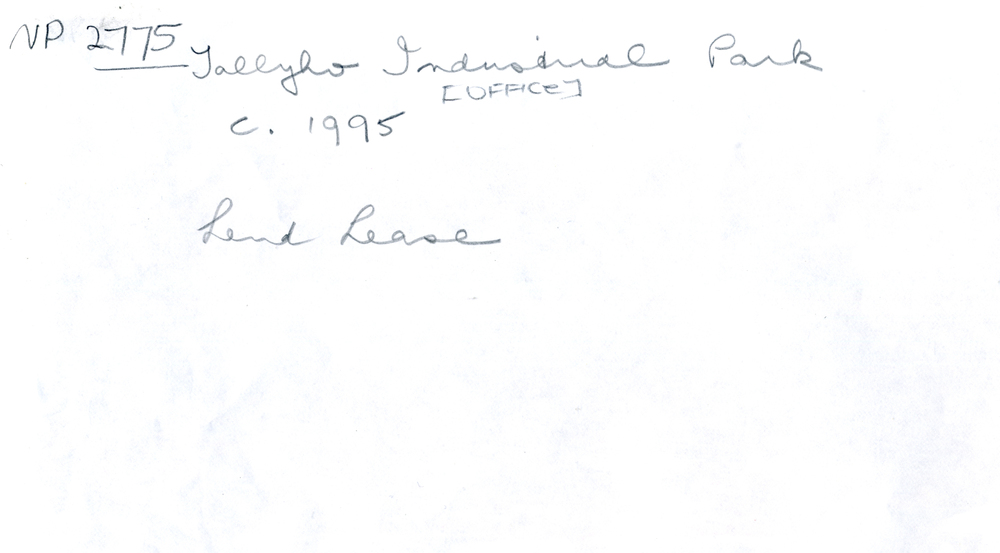 NP 2775 Tallyho Industrial Park
[OFFICE]
c. 1995
Lend Lease